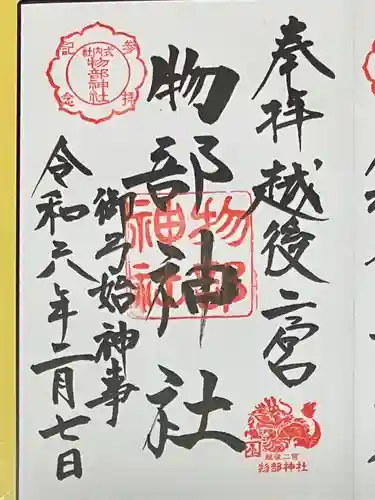 奉拝 越後二宮
物部神社
御弓始神事
令和六年二月七日
参拝記念
式内社
物部神社
物部神社
越後二宮
物部神社